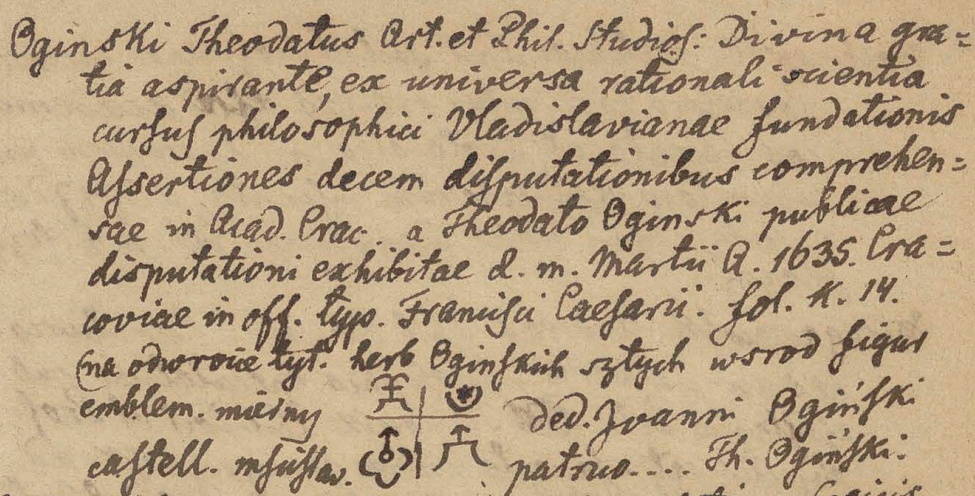 Oginski Theodatus Art. et Phil. Studios: Divina gra=
tia aspirante, ex universa rationali scientia
cursus philosophici Vladislavianae fundationis
Assertiones decem disputationibus comprehen=
sae in Acad. Crac. a Theodato Oginski publicae
disputationi exhibitae d. m. Martii A. 1635. Cra=
coviae in off. typ. Francisci Caesarii. fol. K. 14.
(na odwrocie tyt. herb Oginskich sztych wsrod figur
emblem. mierny ded. Joanni Ogiński
castell. mscislav. patruo.... Th. Ogiński.